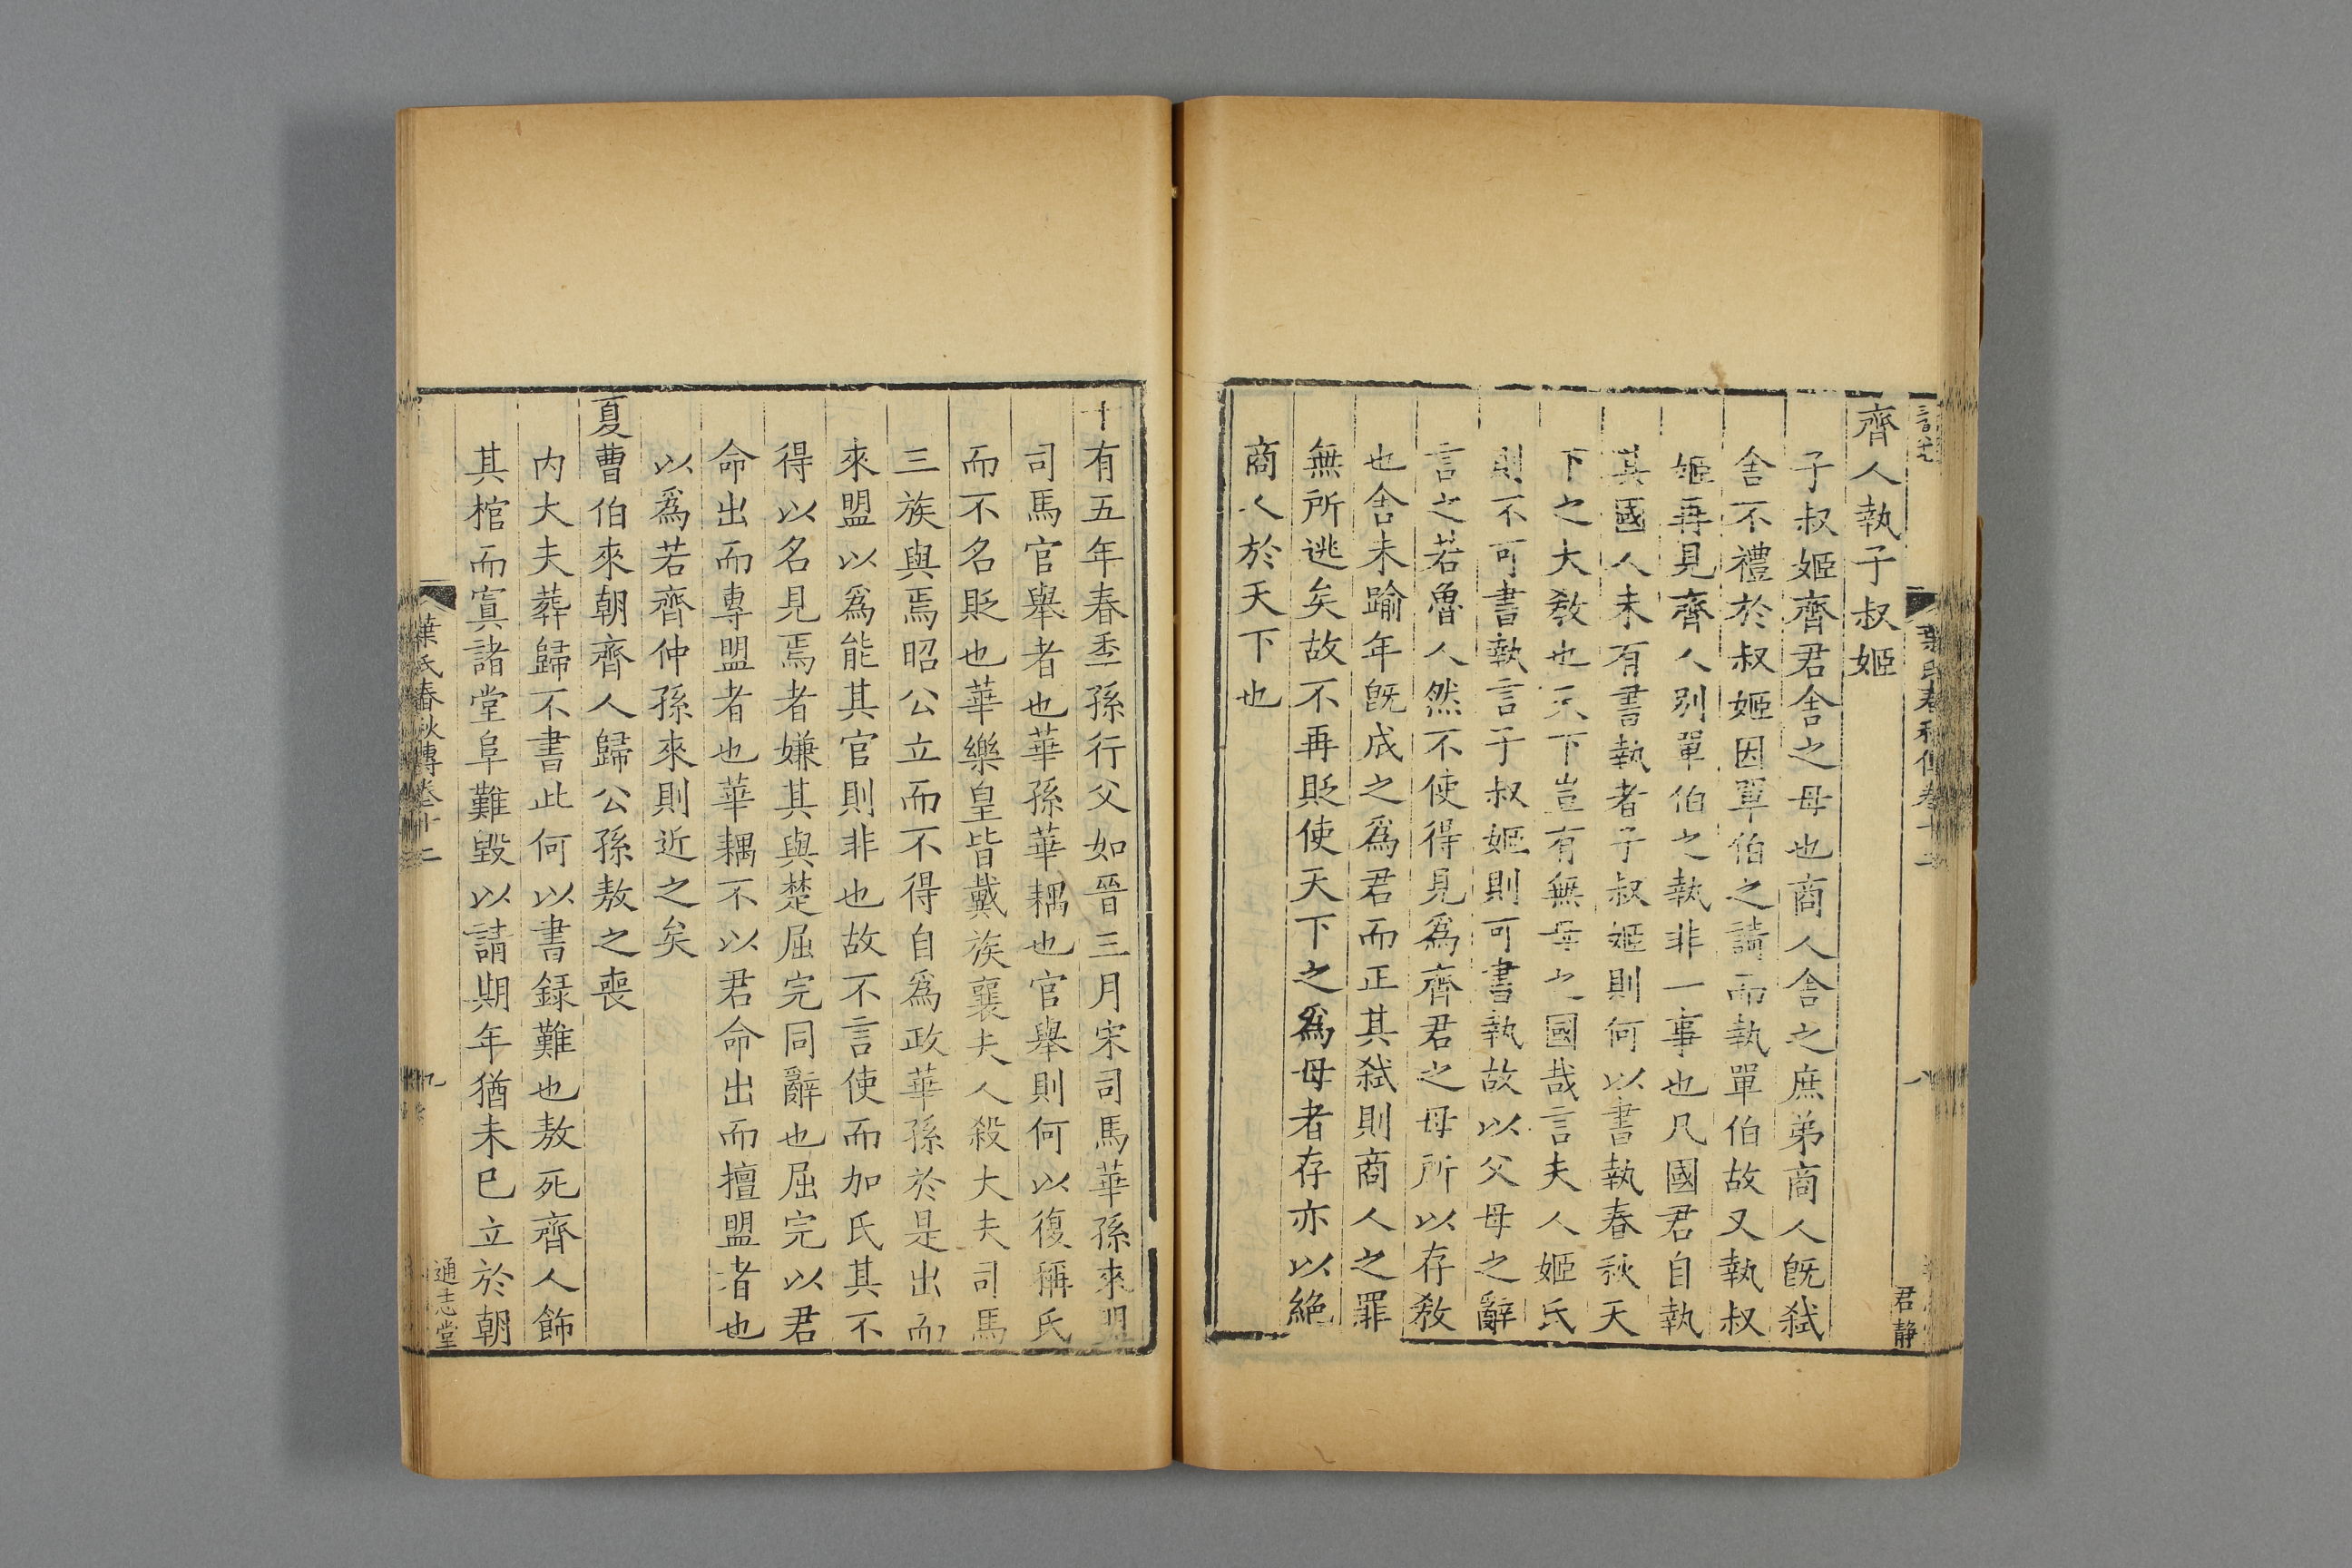 齊人執子叔姬
子叔姬齊君舍之母也商人舍之庶弟商人旣弑
舍不禮於叔姬因單伯之請而執單伯故又執叔
姬再見齊人別單伯之執非一事也凡國君自執
其國人未有書執者子叔姬則何以書執春秋天
下之大敎也天下豈有無母之國哉言夫人姬氏
則不可書執言子叔姬則可書執故以父母之辭
言之若魯人然不使得見爲齊君之母所以存敎
也舍未踰年旣成之爲君而正其弑則商人之罪
無所逃矣故不再貶使天下之爲母者存亦以絕
商人於天下也
葉氏春秋傳卷十二
八
君靜
十有五年春季孫行父如晉三月宋司馬華孫來盟
司馬官舉者也華孫華耦也官舉則何以復稱氏
而不名貶也華樂皇皆戴族襄夫人殺大夫司馬
三族與焉昭公立而不得自爲政華孫於是出而
來盟以爲能其官則非也故不言使而加氏其不
得以名見焉者嫌其與楚屈完同辭也屈完以君
命出而專盟者也華耦不以君命出而擅盟者也
以爲若齊仲孫來則近之矣
夏曹伯來朝齊人歸公孫敖之喪
內大夫葬歸不書此何以書録難也敖死齊人飾
其棺而寘諸堂阜難毀以請期年猶未已立於朝
葉氏春秋傳卷十二
九
通志堂